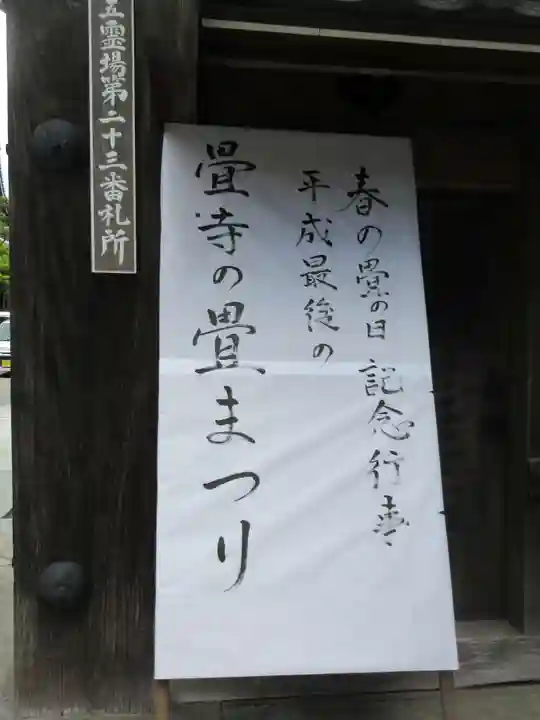 春の畳の日記念行事
平成最後の
畳寺の畳まつり
五霊場第二十三番札所